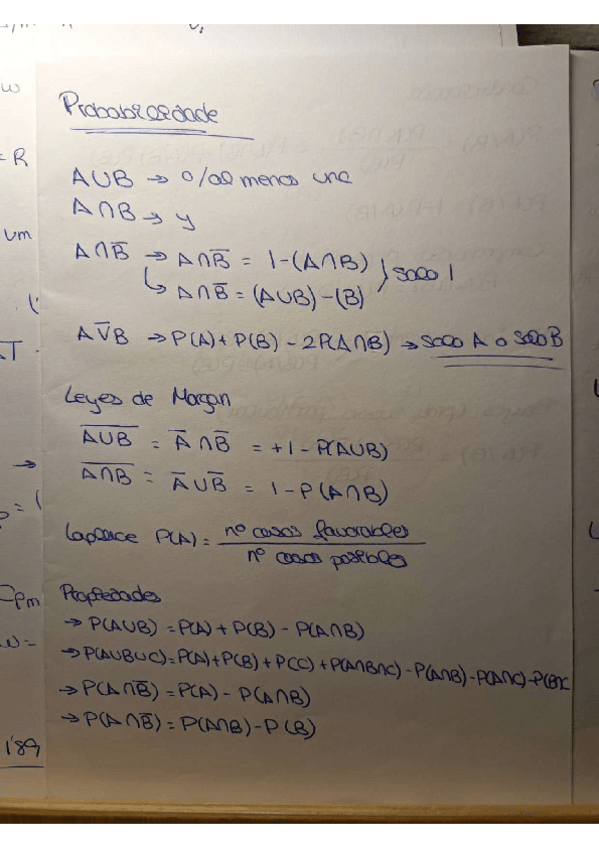 Probabilidade
A∪B → o/al menos uno
A∩B → y
A∩B̅ → A∩B̅ = 1-(A∩B)
↳ A∩B̅ = (A∪B)-(B) } solo 1
A⊽B → P(A)+P(B)-2P(A∩B) → solo A o solo B
Leyes de Morgan
\overline{A∪B} = A̅∩B̅ = +1-P(A∪B)
\overline{A∩B} = A̅∪B̅ = 1-P(A∩B)
Laplace P(A) = nº casos favorables
nº casos posibles
Propiedades
→ P(A∪B) = P(A)+P(B)-P(A∩B)
→ P(A∪B∪C) = P(A)+P(B)+P(C)+P(A∩B∩C)-P(A∩B)-P(A∩C)-P(B∩C
→ P(A∩B̅) = P(A)-P(A∩B)
→ P(A∩B̅) = P(A∩B)-P(B)
= R
um
AT
Cpm
W=
1'89